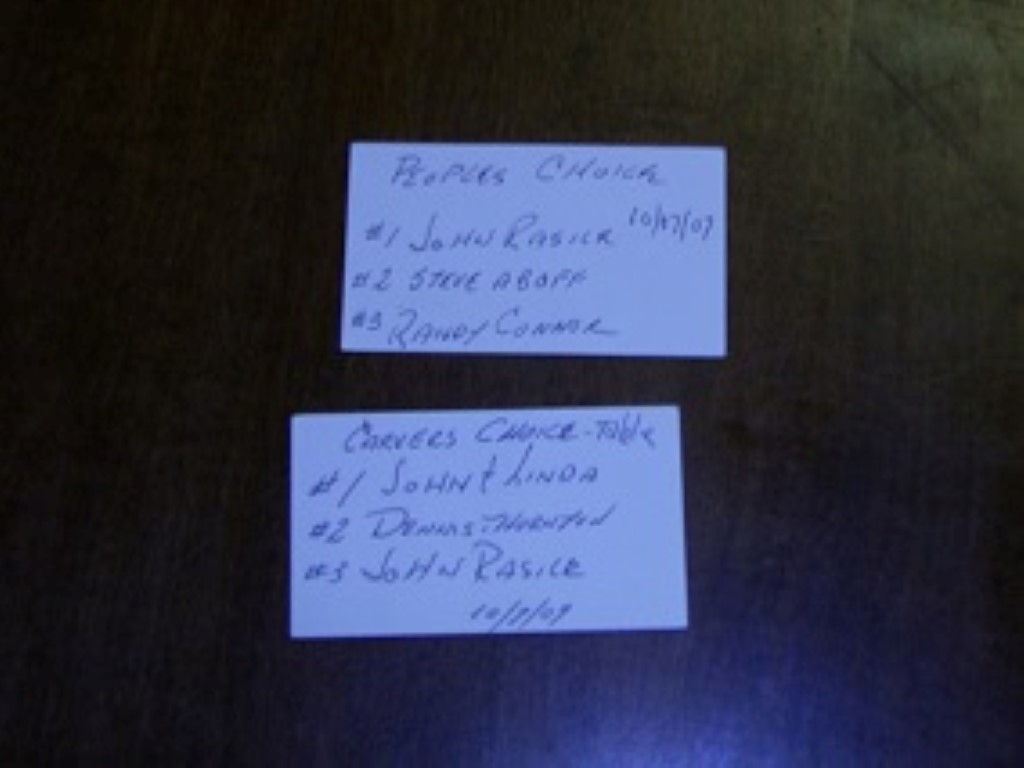 PEOPLES CHOICE
#1 JOHN RASICR
#2 STEVE ABOFF
#3 RANDY CONNOR
CARVERS CHOICE-Table
#1 JOHN & LINDA
#2 DENNIS THORNTON
#3 JOHN RASICR
10/7/07